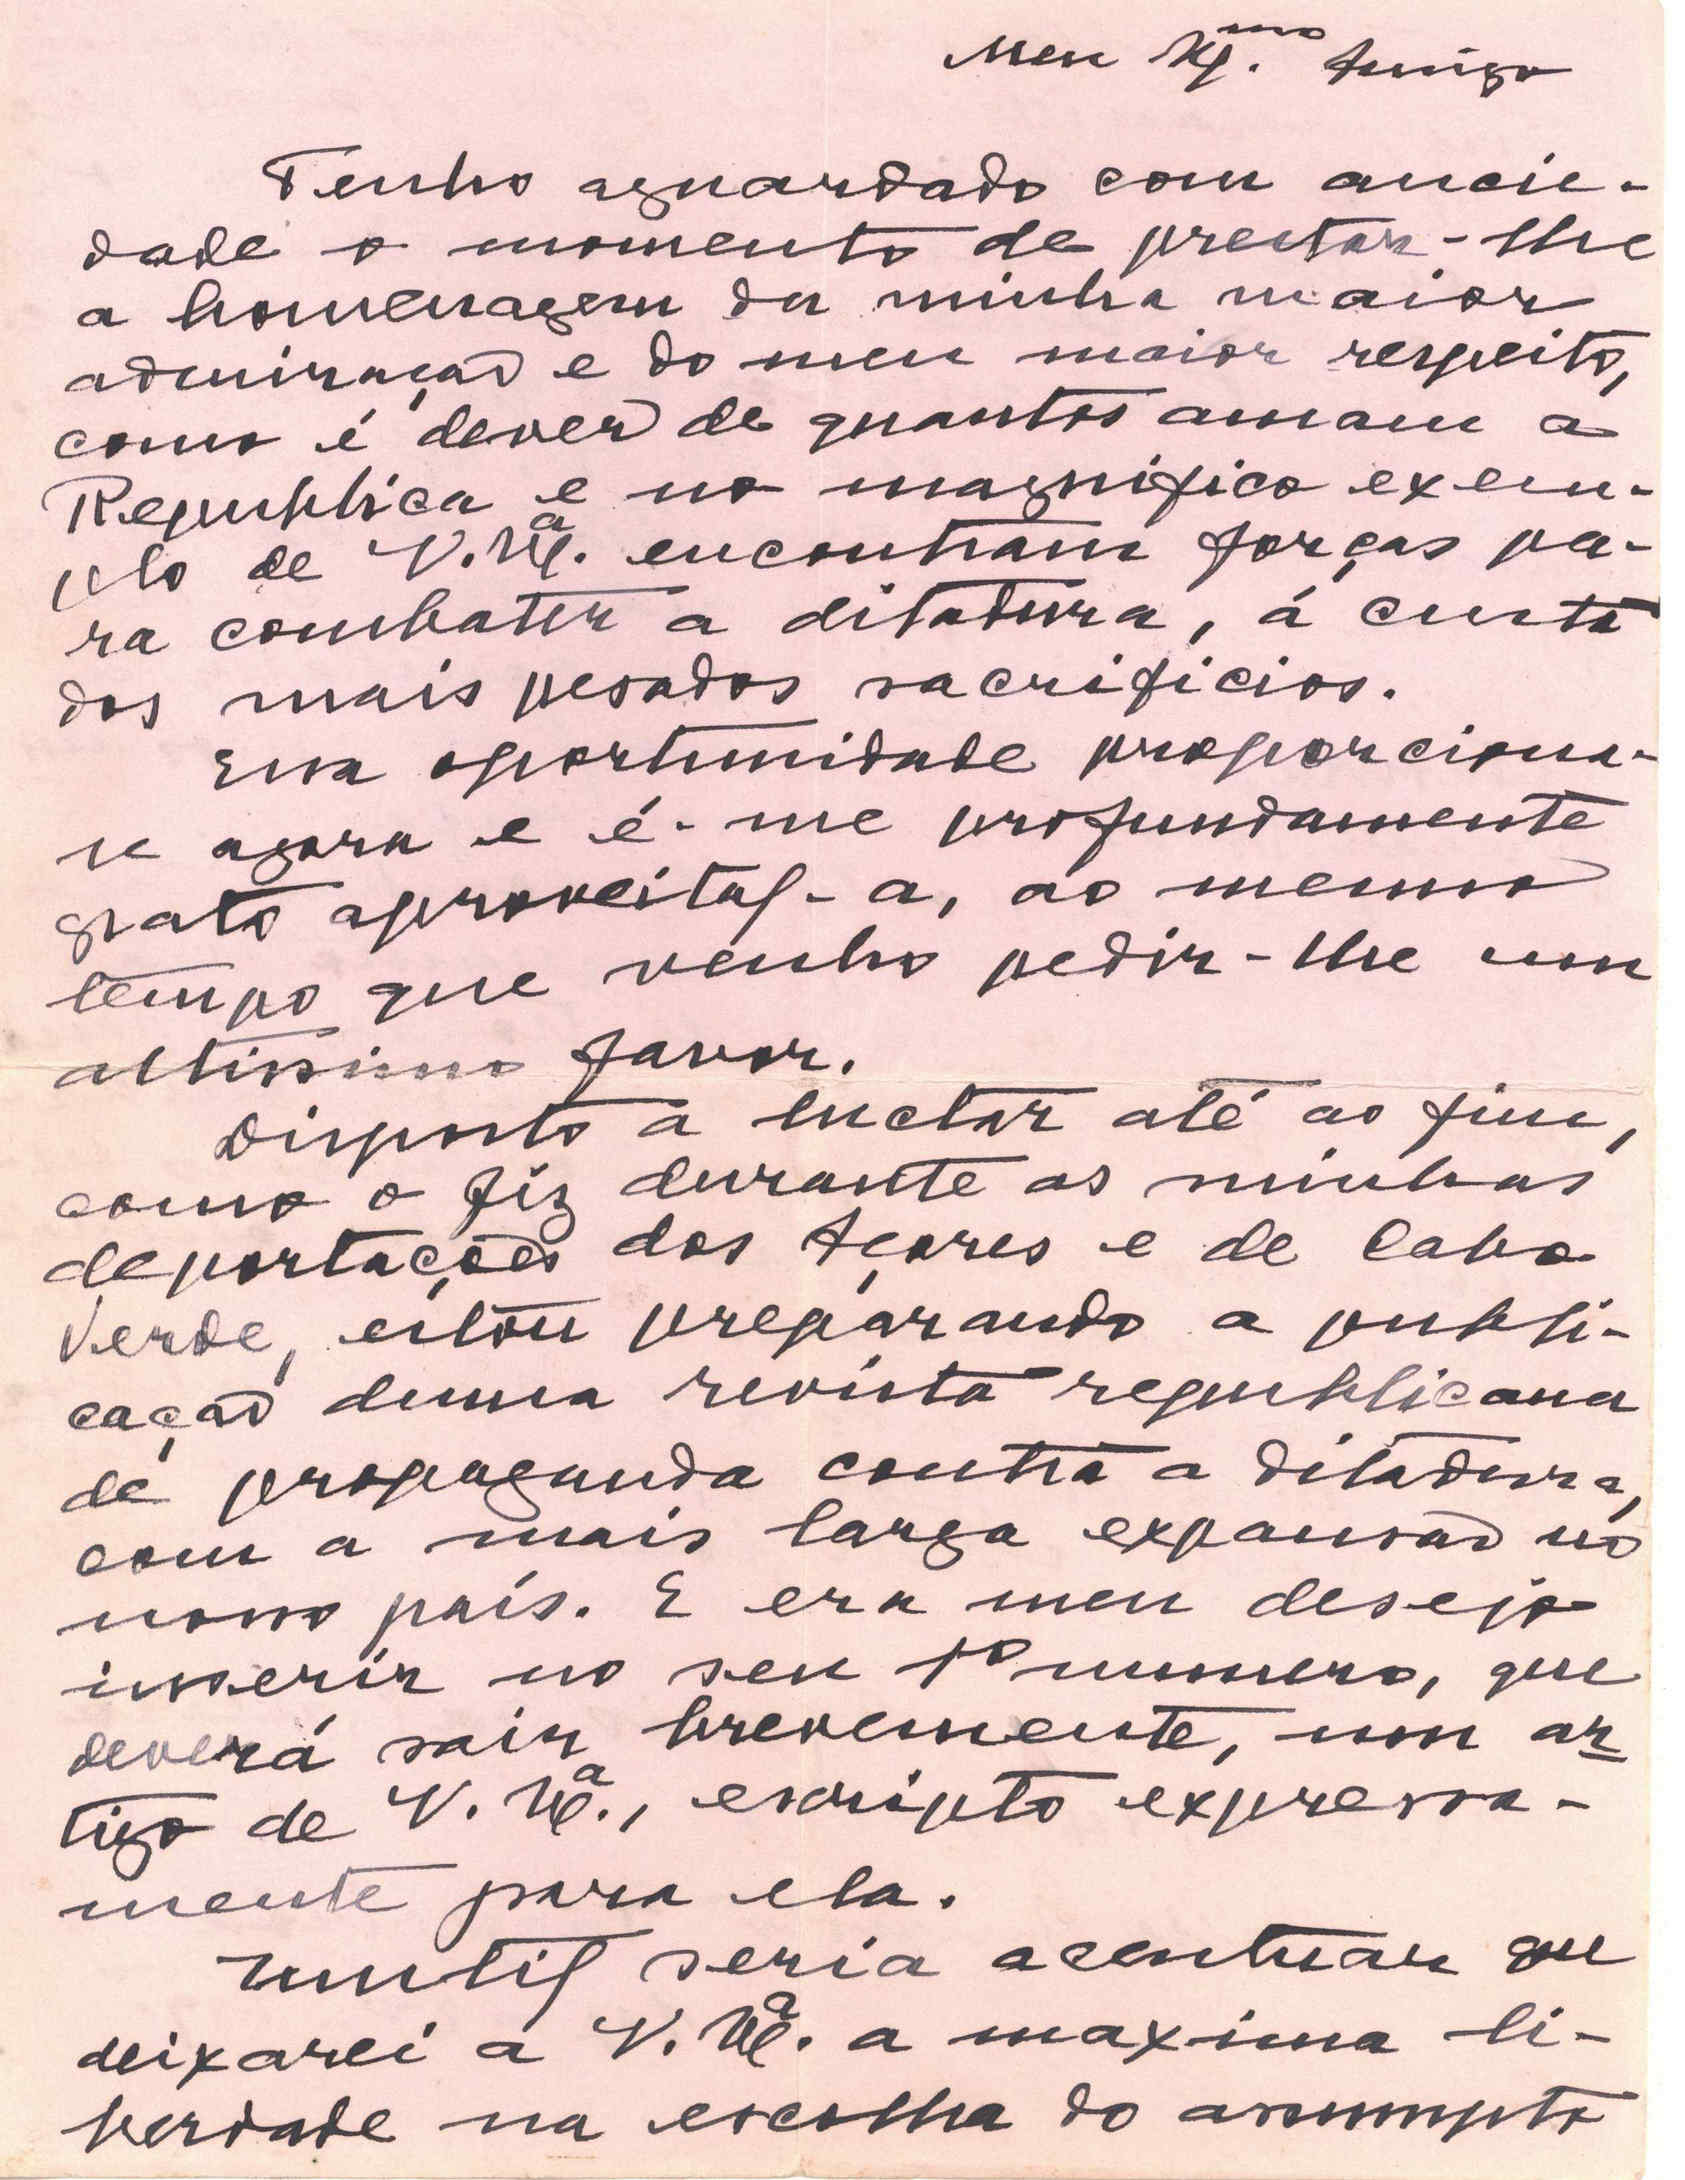 Meu Ex.mo Amigo
Tenho aguardado com ancie-
dade o momento de prestar-lhe
a homenagem da minha maior
admiração e do meu maior respeito,
como é dever de quantos amam a
Republica e no magnifico exem-
plo de V. Ex.a encontram forças pa-
ra combater a ditadura, á custa
dos mais pesados sacrificios.
Essa oportunidade proporciona-
se agora e é-me profundamente
grato aproveital-a, ao mesmo
tempo que venho pedir-lhe um
altissimo favor.
Disposto a luctar até ao fim,
como o fiz durante as minhas
deportações dos Açores e de Cabo
Verde, estou preparando a publi-
cação duma revista republicana
de propaganda contra a ditadura,
com a mais larga expansão no
nosso país. E era meu desejo
inserir no seu 1º numero, que
deverá sair brevemente, um ar-
tigo de V. Ex.a, escripto expressa-
mente para ela.
Inutil seria acentuar que
deixarei a V. Ex.a a maxima li-
berdade na escolha do assumpto